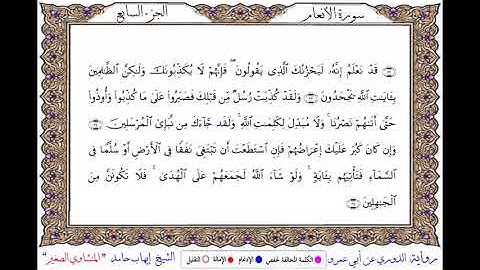 سورة الأنعام
الجزء السابع
قَدْ نَعْلَمُ إِنَّهُۥ لَيَحْزُنُكَ ٱلَّذِى يَقُولُونَ ۖ فَإِنَّهُمْ لَا يُكَذِّبُونَكَ وَلَٰكِنَّ ٱلظَّٰلِمِينَ
بِـَٔايَٰتِ ٱللَّهِ يَجْحَدُونَ وَلَقَدْ كُذِّبَتْ رُسُلٌ مِّن قَبْلِكَ فَصَبَرُوا۟ عَلَىٰ مَا كُذِّبُوا۟ وَأُوذُوا۟
حَتَّىٰٓ أَتَىٰهُمْ نَصْرُنَا ۚ وَلَا مُبَدِّلَ لِكَلِمَٰتِ ٱللَّهِ ۚ وَلَقَد جَّآءَكَ مِن نَّبَإِى۟ ٱلْمُرْسَلِينَ
وَإِن كَانَ كَبُرَ عَلَيْكَ إِعْرَاضُهُمْ فَإِنِ ٱسْتَطَعْتَ أَن تَبْتَغِىَ نَفَقًا فِى ٱلْأَرْضِ أَوْ سُلَّمًا فِى
ٱلسَّمَآءِ فَتَأْتِيَهُم بِـَٔايَةٍ ۚ وَلَوْ شَآءَ ٱللَّهُ لَجَمَعَهُمْ عَلَى ٱلْهُدَىٰ ۚ فَلَا تَكُونَنَّ مِنَ
ٱلْجَٰهِلِينَ
رواية الدوري عن أبي عمرو
الكلمة المخالفة لحفص الإدغام الإمالة التقليل
الشيخ إيهاب حامد "المنشاوي الصغير"